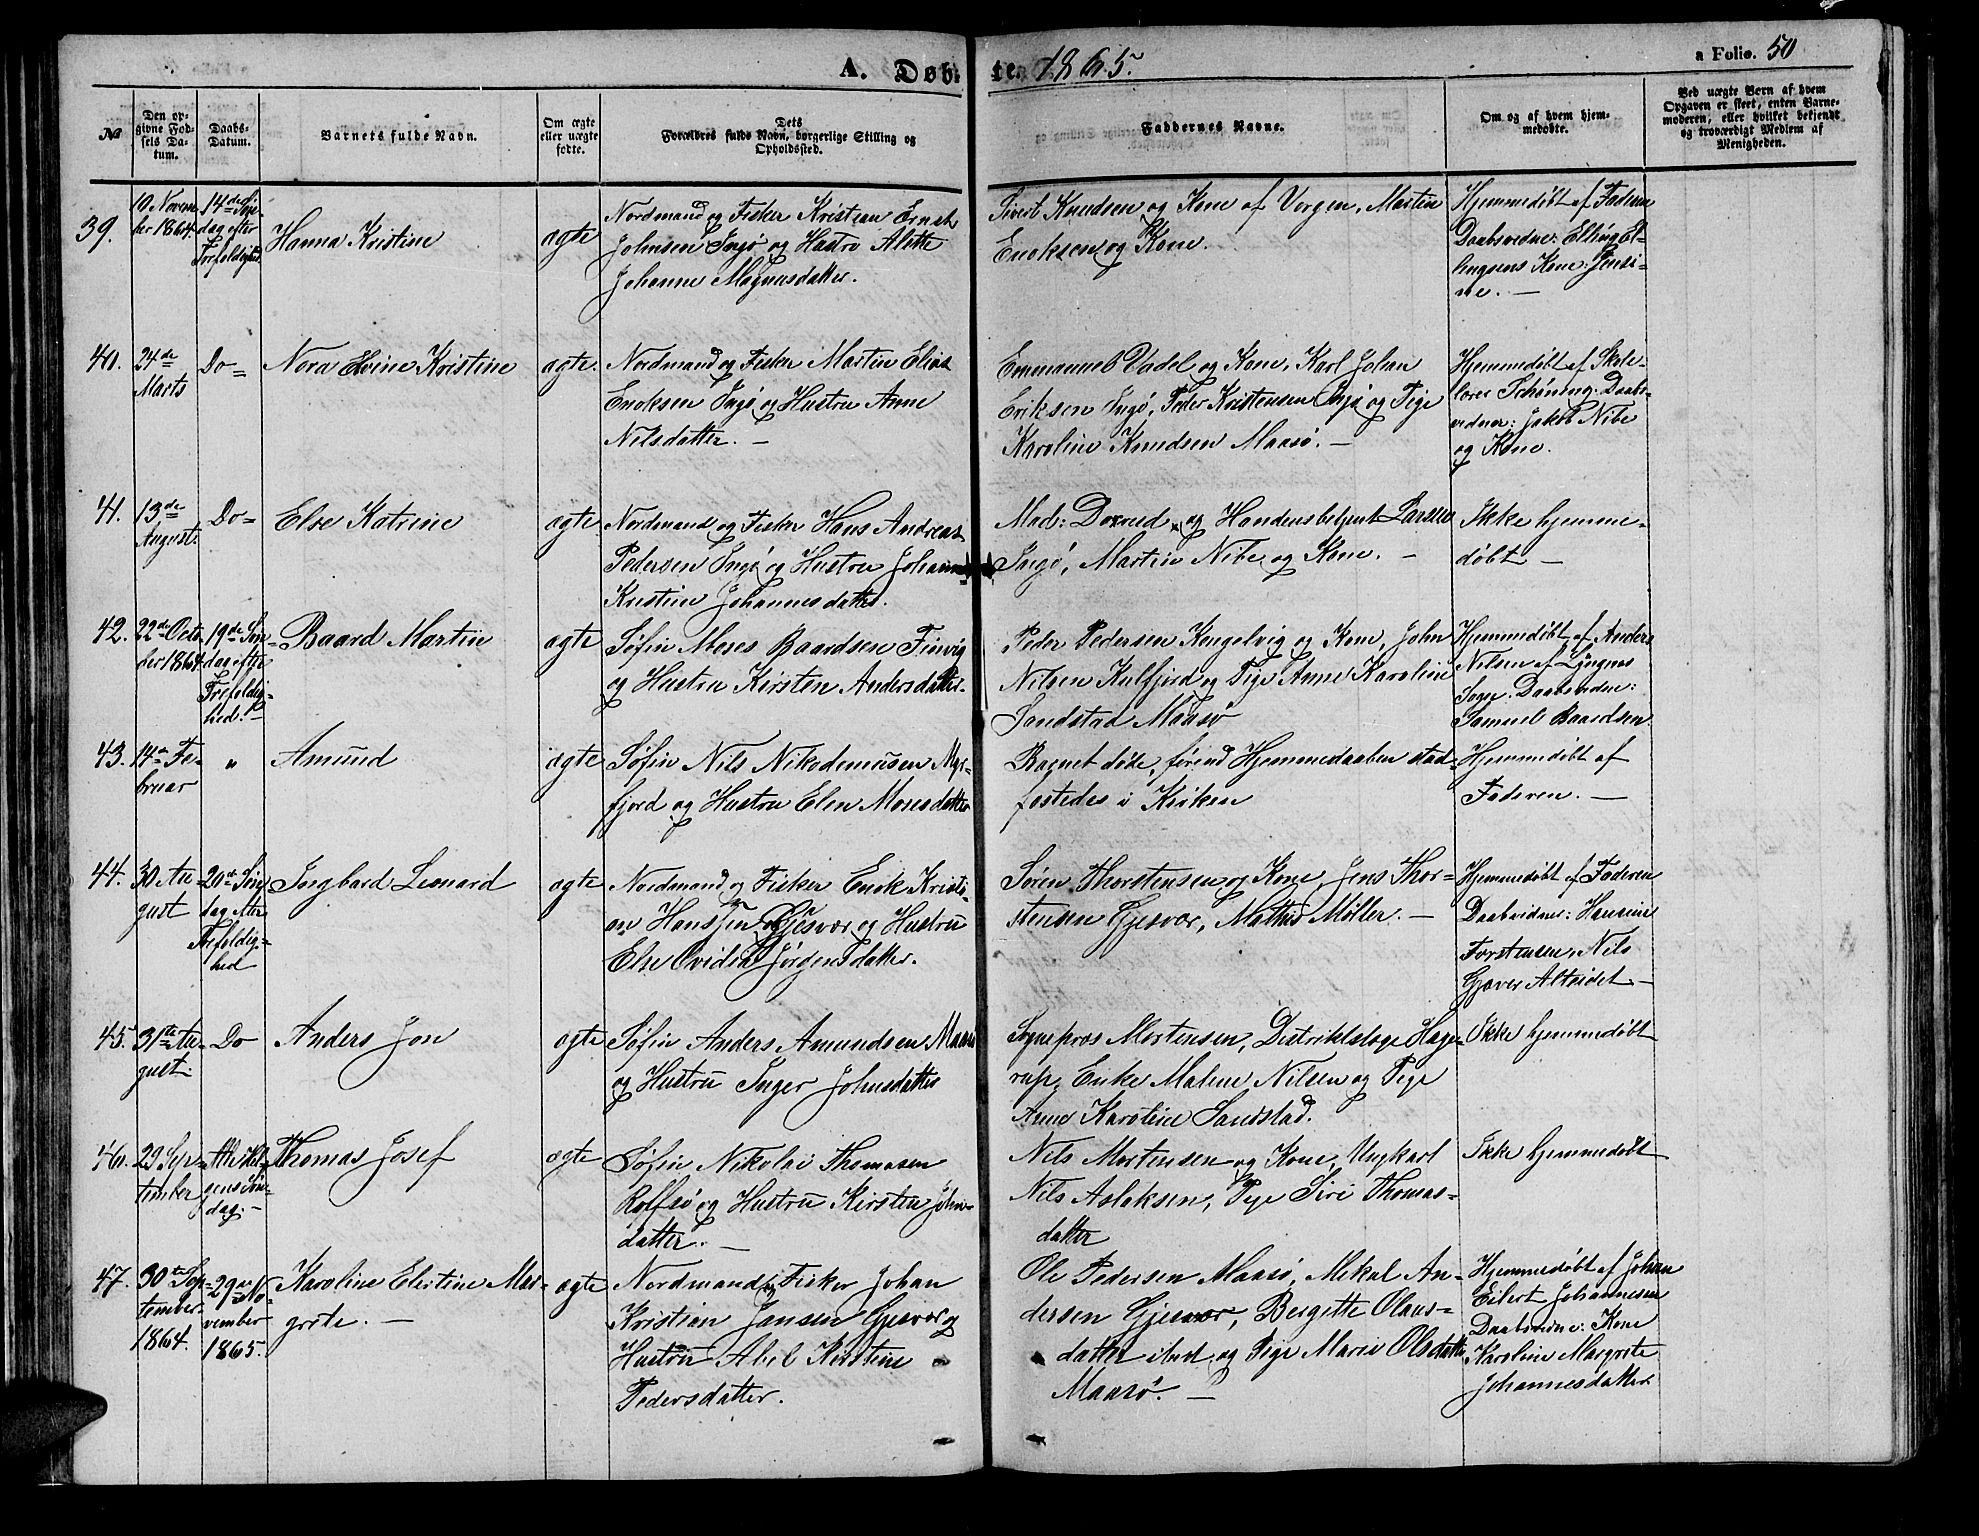 A. Døbte. 1865.
a Folio. 50
№
Den opgivne Fødsels Datum.
Daabs-Datum.
Barnets fulde Navn.
Om ægte eller uægte fødte.
Dets Forældres fulde Navn, borgerlige Stilling og Opholdssted.
Faddernes Navne.
Om og af hvem hjemmedøbte.
Ved uægte Børn af hvem Opgaven er skeet, enten Barnemoderen, eller hvilket bekjendt og troværdigt Medlem af Menigheden.
39.
10 Novem
ber 1864.
14de Søn
dag efter
Trefoldighed
Hanna Kristine
ægte
Nordmand og Fisker Kristian Ernst
Johnsen Ingø og Hustro Alette
Johanne Magnusdatter.
Sivert Knudsen og Kone af Vorgen, Martin
Enoksen og Kone.
Hjemmedøbt af Faderen
Daabsvidner: Elling El-
lingsens Kone: Jensi-
ne. —
40.
24de
Marts
Do=
Nora Elvine Kristine
ægte.
Nordmand og Fisker Martin Elias
Enoksen Ingø og Hustru Anne
Nilsdatter. —
Emmanuel Vadel og Kone, Karl Johan
Eriksen Ingø, Peder Kristensen Ingø og Pige
Karoline Knudsen Maasø. —
Hjemmedøbt af Skole-
lærer Schøning. Daabs-
vidner: Jakob Nibe
og Kone.
41.
13de
August.
Do=
Else Katrine
ægte
Nordmand og Fisker Hans Andreas
Pedersen Ingø og Hustru Johanne
Kristine Johannesdatter.
Mad: Dorrud og Handensbetjent Larsen
Ingø, Martin Nibe og Kone. —
Ikke hjemme-
døbt —
42.
22de Octo
ber 1864
19de Søn
dag efter
Trefoldig-
hed. —
Baard Martin
ægte
Søfin Moses Baardsen Finvig
og Hustru Kirsten Andersdatter.
Peder Pedersen Kongelvig og Kone, John
Nilsen Kulfjord og Pige Anne Karoline
Sandstad Maasø
Hjemmedøbt af Anders
Nilsen af Lyngens
Sogn. Daabsviden:
Samuel Baardsen.
43.
14de Fe-
bruar
"
Amund
ægte
Søfin Nils Nikodemusen Myr-
fjord og Hustru Elen Mosesdatter
Barnet døde, førend Hjemmedaaben stad-
fæstedes i Kirken
Hjemmedøbt af
Faderen. —
44.
30 Au-
gust
20de Søn
dag efter
Trefoldig-
hed
Ingbard Leonard
ægte
Nordmand og Fisker Enok Kristi-
an Hanssen Gjesvær og Hustru
Else Ovidia Jørgensdatter.
Søren Thorstensen og Kone, Jens Thor-
stensen Gjesvær, Mathis Møller. —
Hjemmedøbt af Faderen
Daabvidner: Hansine
Torstensen, Nils
Gjøver Alteidet —
45.
31te Au-
gust.
Do
Anders Jon
ægte
Søfin Anders Amundsen Maasø
og Hustru Inger Johnsdatter
Sognepræs Mortensen, Distriktslæge Hage-
rup, Enke Malene Nilsen og Pige
Anne Karoline Sandstad.
Ikke hjemmedøbt
46.
29 Sep-
tember
Alle Hel-
gens Søn-
dag. —
Thomas Josef
ægte
Søfin Nikolai Thomasen
Rolfsø og Hustru Kirsten John-
datter. —
Nils Mortensen og Kone, Ungkarl
Nils Aslaksen, Pige Siri Thomas-
datter
Ikke hjemmedøbt
47.
30te Sep-
tember
1864.
29de No-
vember
1865.
Karoline Elertine Mar-
grete. —
ægte
Nordmand og Fisker Johan
Kristian Jansen Gjesvær og
Hustru Abel Kirstine
Pedersdatter.
Ole Pedersen Maasø, Mekal An-
dersen Gjesvær, Bergitte Olaus-
datter ibid og Pige Marie Olsdatter
Maasø. —
Hjemmedøbt af Johan
Eilert Johannesen
Daabsvidne: Kone
Karoline Margrete
Johannesdatter